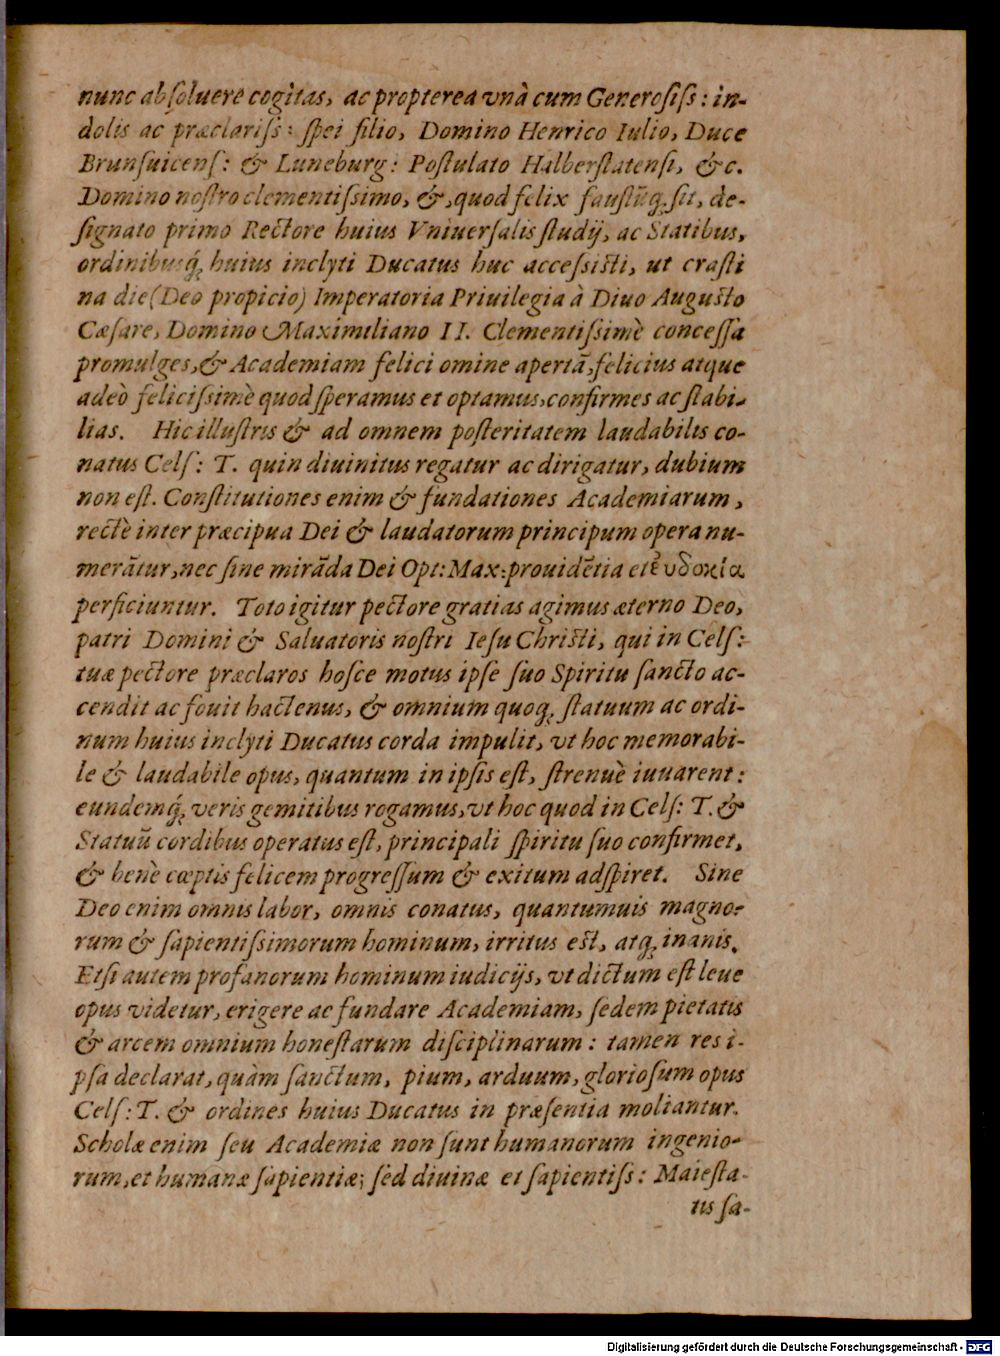 nunc absoluere cogitas, ac propterea vnà cum Generosiss: in-
dolis ac præclariss: spei filio, Domino Henrico Iulio, Duce
Brunsuicens: & Luneburg: Postulato Halberstatensi, &c.
Domino nostro clementissimo, &, quod felix faustũq; sit, de-
signato primo Rectore huius Vniuersalis studij, ac Statibus,
ordinibusq́; huius inclyti Ducatus huc accessisti, ut crasti
na die (Deo propicio) Imperatoria Priuilegia à Diuo Augusto
Cæsare, Domino Maximiliano II. Clementissimè concessa
promulges, & Academiam felici omine apertã, felicius atque
adeò felicissimè quod speramus et optamus, confirmes ac stabi-
lias. Hic illustris & ad omnem posteritatem laudabilis co-
natus Cels: T. quin diuinitus regatur ac dirigatur, dubium
non est. Constitutiones enim & fundationes Academiarum,
rectè inter præcipua Dei & laudatorum principum opera nu-
merãtur, nec sine mirãda Dei Opt: Max: prouidẽtia et ἐυδοκία
perficiuntur. Toto igitur pectore gratias agimus æterno Deo,
patri Domini & Saluatoris nostri Iesu Christi, qui in Cels:
tuæ pectore præclaros hosce motus ipse suo Spiritu sancto ac-
cendit ac fouit hactenus, & omnium quoq; statuum ac ordi-
num huius inclyti Ducatus corda impulit, vt hoc memorabi-
le & laudabile opus, quantum in ipsis est, strenuè iuuarent:
eundemq́; veris gemitibus rogamus, vt hoc quod in Cels: T. &
Statuũ cordibus operatus est, principali spiritu suo confirmet,
& benè cœptis felicem progressum & exitum adspiret. Sine
Deo enim omnis labor, omnis conatus, quantumuis magno-
rum & sapientissimorum hominum, irritus est, atq; inanis.
Etsi autem profanorum hominum iudicijs, vt dictum est leue
opus videtur, erigere ac fundare Academiam, sedem pietatis
& arcem omnium honestarum disciplinarum: tamen res i-
psa declarat, quàm sanctum, pium, arduum, gloriosum opus
Cels: T. & ordines huius Ducatus in præsentia moliantur.
Scholæ enim seu Academiæ non sunt humanorum ingenio-
rum, et humanæ sapientiæ; sed diuinæ et sapientiss: Maiesta-
tis sa-
Digitalisierung gefördert durch die Deutsche Forschungsgemeinschaft - DFG